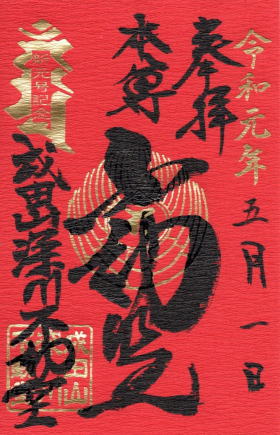 令和元年
五月一日
奉拝
本尊
新元号記念
成田山深川不動堂
成田山